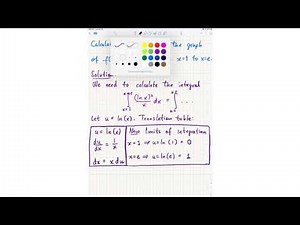 Calcula the graph
of x=1 to x=e.
Solution.
We need to calculate the integral
∫ x=1 x=e (ln x)ⁿ/x dx = ∫ ...
Let u = ln(x). Translation table:
u = ln(x) New limits of integration
du/dx = 1/x x=1 ⇒ u = ln(1) = 0
dx = x du x=e ⇒ u = ln(e) = 1